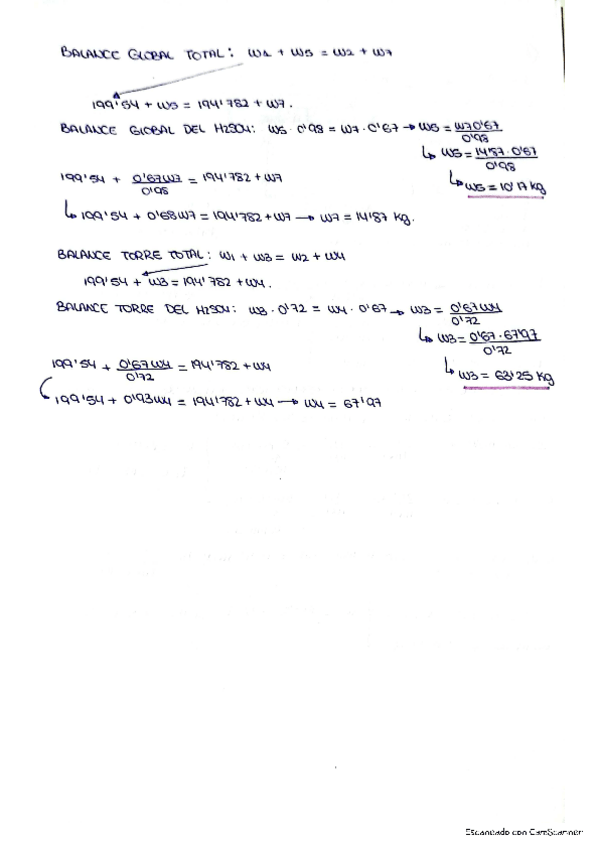 BALANCE GLOBAL TOTAL: W1 + W5 = W2 + W7
199'54 + W5 = 194'782 + W7.
BALANCE GLOBAL DEL H2SO4: W5 · 0'98 = W7 · 0'67 → W5 = W7 0'67 / 0'98
↳ W5 = 14'87 · 0'67 / 0'98
199'54 + 0'67W7 / 0'98 = 194'782 + W7
↳ W5 = 10'17 kg
↳ 199'54 + 0'68W7 = 194'782 + W7 → W7 = 14'87 kg.
BALANCE TORRE TOTAL: W1 + W3 = W2 + W4
199'54 + W3 = 194'782 + W4.
BALANCE TORRE DEL H2SO4: W3 · 0'72 = W4 · 0'67 → W3 = 0'67W4 / 0'72
↳ W3 = 0'67 · 67'97 / 0'72
199'54 + 0'67W4 / 0'72 = 194'782 + W4
↳ W3 = 63'25 kg
199'54 + 0'93W4 = 194'782 + W4 → W4 = 67'97
Escaneado con CamScanner